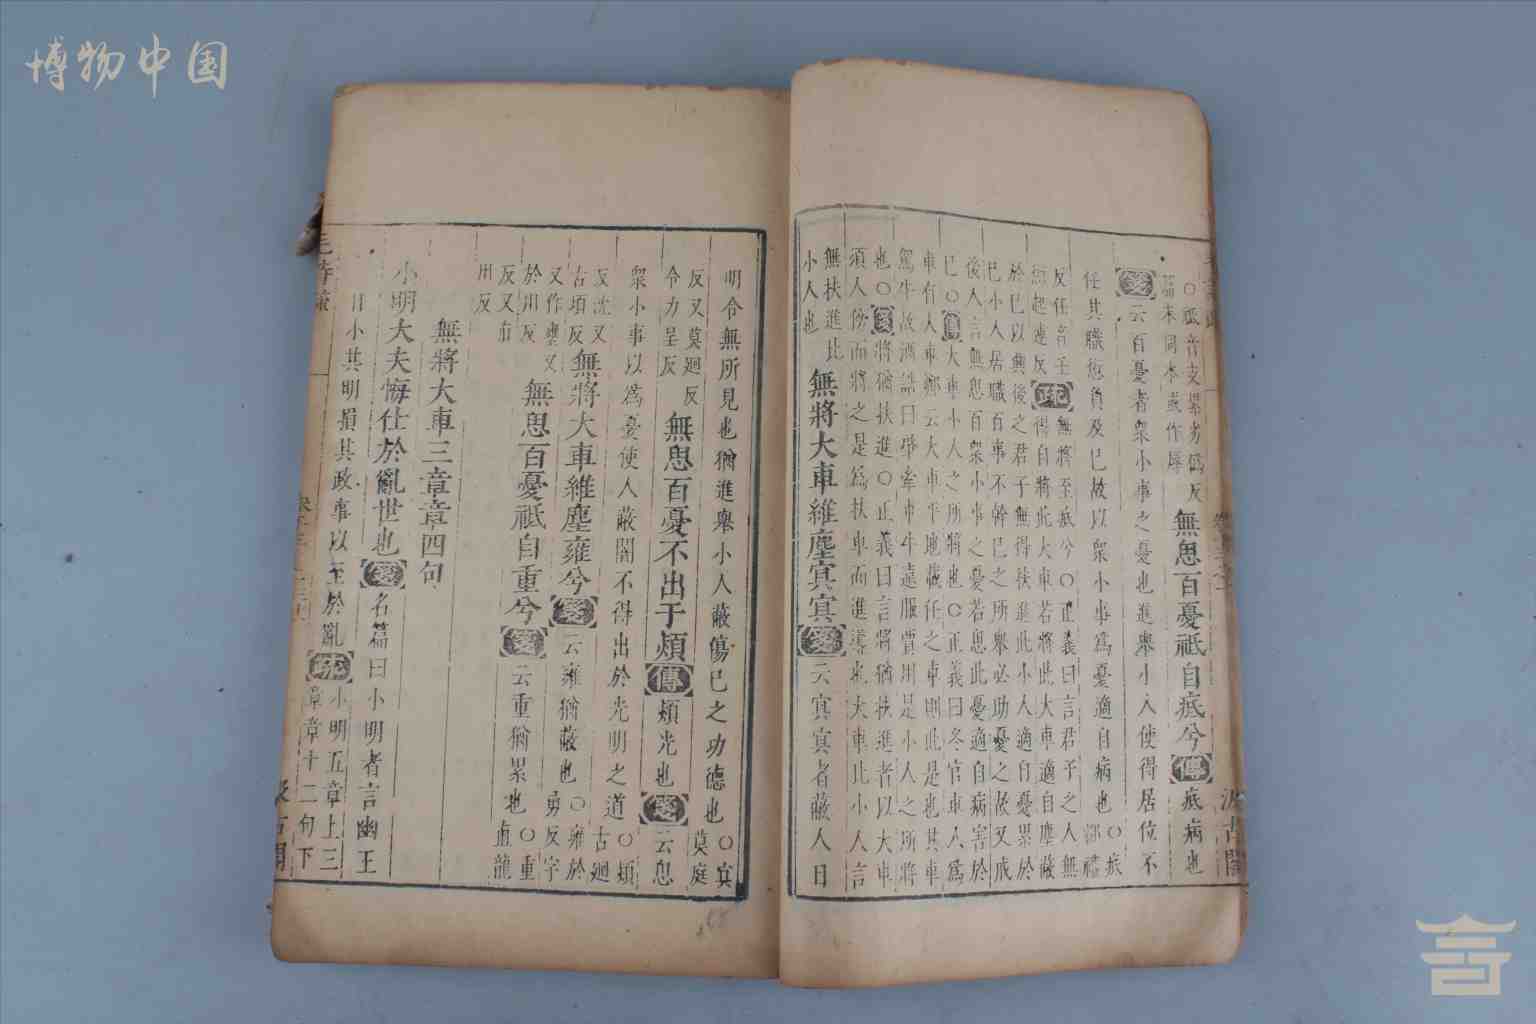 博物中国
○祗音支累劣偽反
篇末同本或作辱
無思百憂祗自疧兮傳疧病也
箋云百憂者衆小事之憂也進舉小人使得居位不
任其職愆負及已故以衆小事為憂適自病也○疧
反任音壬疏無將至疧兮○正義曰言君子之人無
得自將此大車若將此大車適自塵蔽
於已以興後之君子無得扶進此小人適自憂累於
已小人居職百事不幹已之所舉必助憂之故又戒
後人言無思百衆小事之憂若思此憂適自病害於
已○傳大車小人之所將也○正義曰冬官車人為
車有大車鄭云大車平地載任之車則此是也其車
駕牛故酒誥曰肇牽車牛遠服賈用是小人之所將
也○箋將猶扶進○正義曰言將猶扶進者以大車
須人傍而將之是為扶車而進導也大車比小人言
無扶進比
小人也
無將大車維塵冥冥箋云冥冥者蔽人目
明令無所見也猶進舉小人蔽傷已之功德也○冥
莫庭
反又莫迥反
令力呈反
無思百憂不出于熲傳熲光也箋云思
衆小事以為憂使人蔽闇不得出於光明之道○熲
古迥
反沈又
古頃反
無將大車維塵雍兮箋云雍猶蔽也○雍於
勇反字
又作壅又
於用反
無思百憂祗自重兮箋云重猶累也○重
直龍
反又直
用反
無將大車三章章四句
小明大夫悔仕於亂世也箋名篇曰小明者言幽王
日小其明損其政事以至於亂疏小明五章上三
章章十二句下
毛詩疏
汲古閣
汲古閣